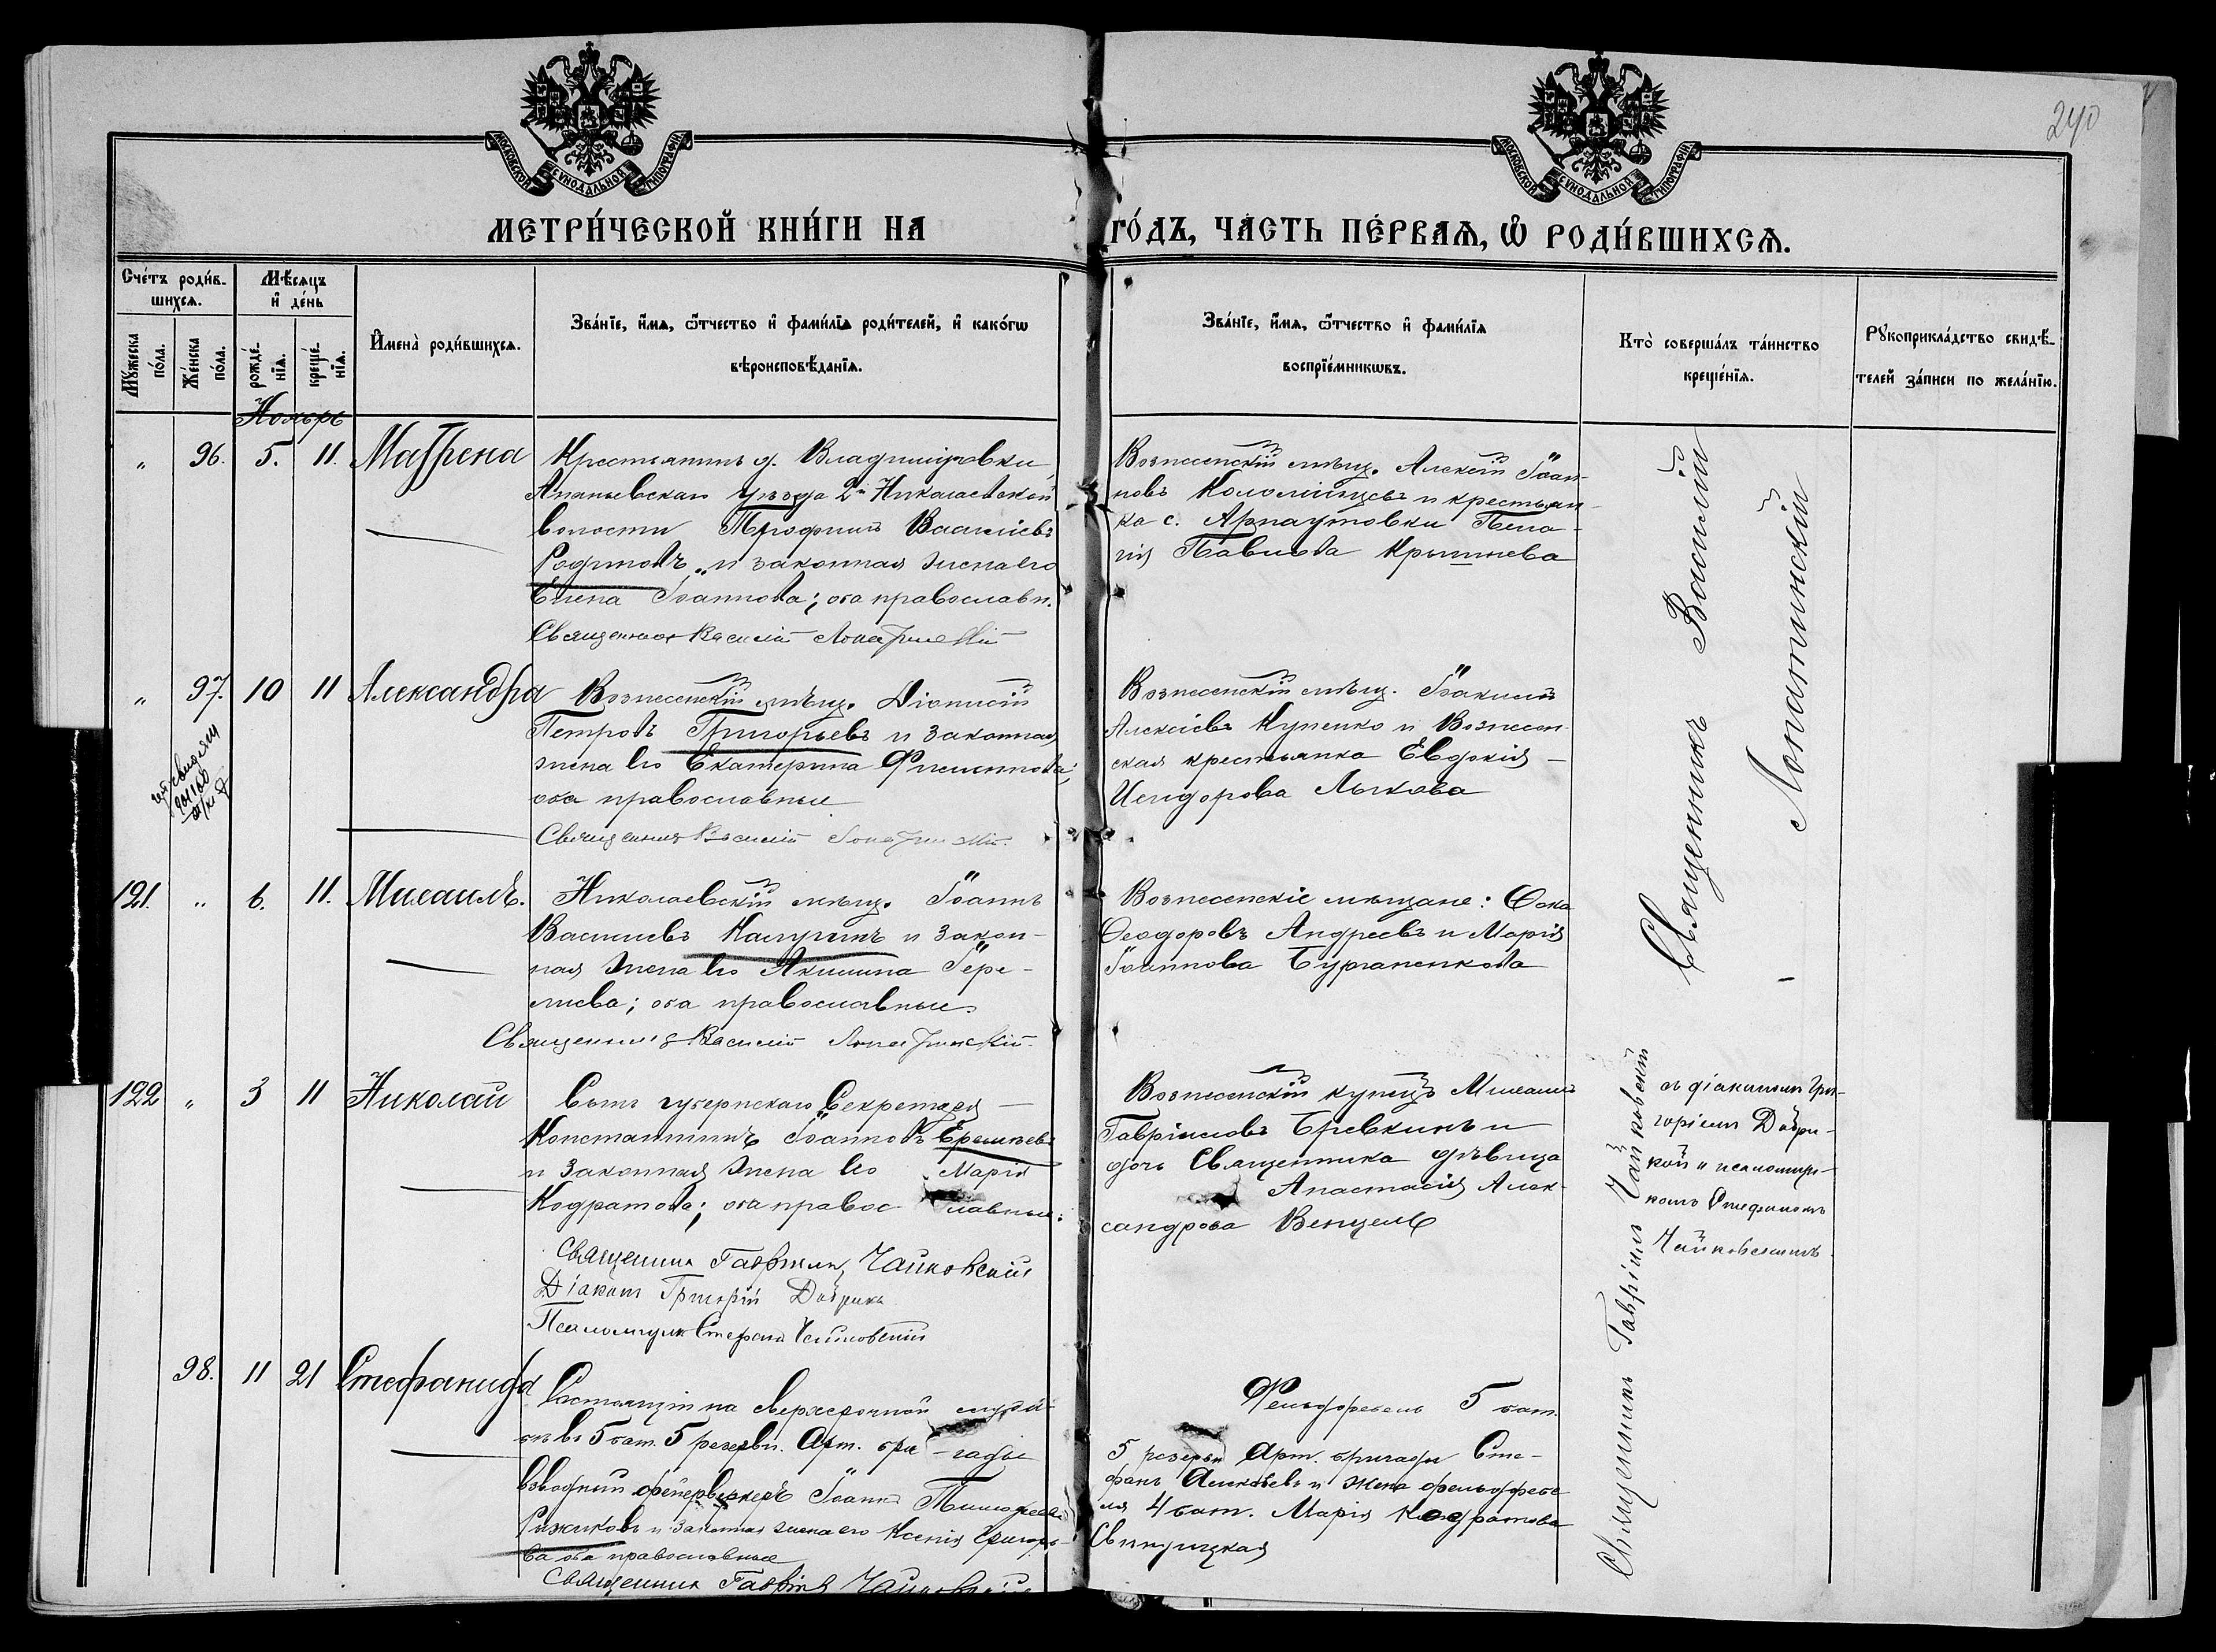 240
МОСКОВСКОЙ СУНОДАЛЬНОЙ ТИПОГРАФІИ
МОСКОВСКОЙ СУНОДАЛЬНОЙ ТИПОГРАФІИ
МЕТРИ́ЧЕСКОЙ КНИ́ГИ НА ГО́ДЪ, ЧА́СТЬ ПЕ́РВАѦ, Ѿ РОДИ́ВШИХСѦ.
Сче́тъ роди́в-
шихсѧ.
Мꙋ́жеска по́ла.
Же́нска по́ла.
Мѣ́сѧцъ
и҆ де́нь
рожде́-
нїѧ.
креще́-
нїѧ.
И҆мена̀ роди́вшихсѧ.
Зва́нїе, и҆́мѧ, ѻ҆́тчество и҆ фами́лїѧ роди́телей, и҆ како́гѡ
вѣроисповѣ́данїѧ.
Зва́нїе, и҆́мѧ, ѻ҆́тчество и҆ фами́лїѧ
воспрїе́мникѡвъ.
Кто̀ соверша́лъ та́инство
креще́нїѧ.
Рꙋкоприкла́дство свидѣ́-
телей за́писи по жела́нїю.
Ноябрь
„ 96. 5. 11. Матрена
Крестьянинъ д. Владиміровки
Ананьевскаго уѣзда 2й Николаевской
волости Трофимъ Василіевъ
Родимовъ и законная жена его
Елена Іоаннова; оба православн.
Священникъ Василій Лопатинскій
Вознесенскій мѣщ. Алексій Іоан-
новъ Коломійцевъ и крестьян-
ка с. Арнаутовки Пела-
гія Павлова Крышнева
„ 97. 10 11 Александра
Вознесенскій мѣщ. Діонисій
Петровъ Григорьевъ и законная
жена его Екатерина Филиппова;
оба православные
Священникъ Василій Лопатинскій.
Вознесенскій мѣщ. Іоакимъ
Алексіевъ Куненко и Вознесен-
ская крестьянка Евдокія
Исидорова Лыкова
121. „ 6. 11. Михаилъ.
Николаевскій мѣщ. Іоаннъ
Василіевъ Калугинъ и закон-
ная жена его Акилина Іере-
міева; оба православные.
Священникъ Василій Лопатинскій.
Вознесенскіе мѣщане: Ѳока
Ѳеодоровъ Андреевъ и Марія
Іоаннова Бурлаченкова
Священникъ Василій
Лопатинскій
122 „ 3 11 Николай
Сынъ губернскаго Секретаря
Константинъ Іоанновъ Еремѣевъ
и законная жена его Марія
Кодратова; оба православные.
Священник Гавріилъ Чайковскій
Діаконъ Григорій Добрикъ
Псаломщик Стефанъ Чайковскій
Вознесенскій купецъ Михаилъ
Гавріиловъ Бревкинъ и
дочь Священника дѣвица
Анастасія Алек-
сандрова Венцель
Священникъ Гавріилъ Чайковскій
съ діакономъ Гри-
горіемъ Добри-
кой и псаломщи-
комъ Стефаномъ
Чайковскимъ
98. 11 21 Стефанида
Состоящій на сверхсрочной служ-
бѣ въ 5 бат. 5 резервн. Арт. бри-гады
взводный фейерверкеръ Іоаннъ
Рыжиковъ и законная жена его Ксенія Григорь-
ева оба православные
Священник Гавріилъ Чайковскій
Фельдфебель 5 бат.
5 резерв. Арт. бригады Сте-
фанъ Алексѣевъ и жена фельдфебе-
ля 4 бат. Марія Кондратова